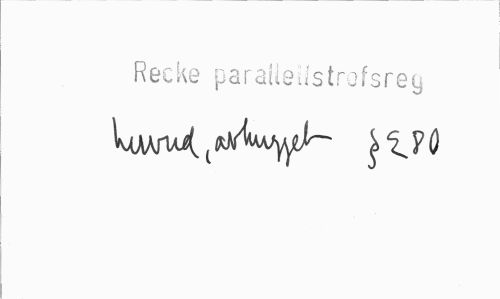 Recke parallellstrofsreg
huvud, avhugget § E 80